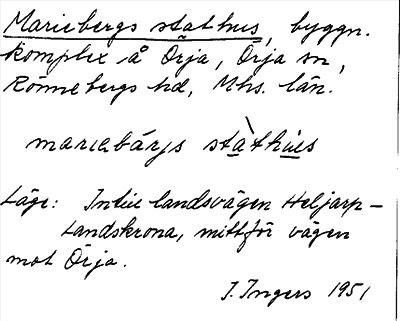 Mariebergs stathus, byggn.
komplex å Örja, Örja sn,
Rönnebergs hd, Mhs. län.
mariebärjs stàthùs
Läge: Intill landsvägen Heljarp–
Landskrona, mittför vägen
mot Örja.
I. Ingers 1951